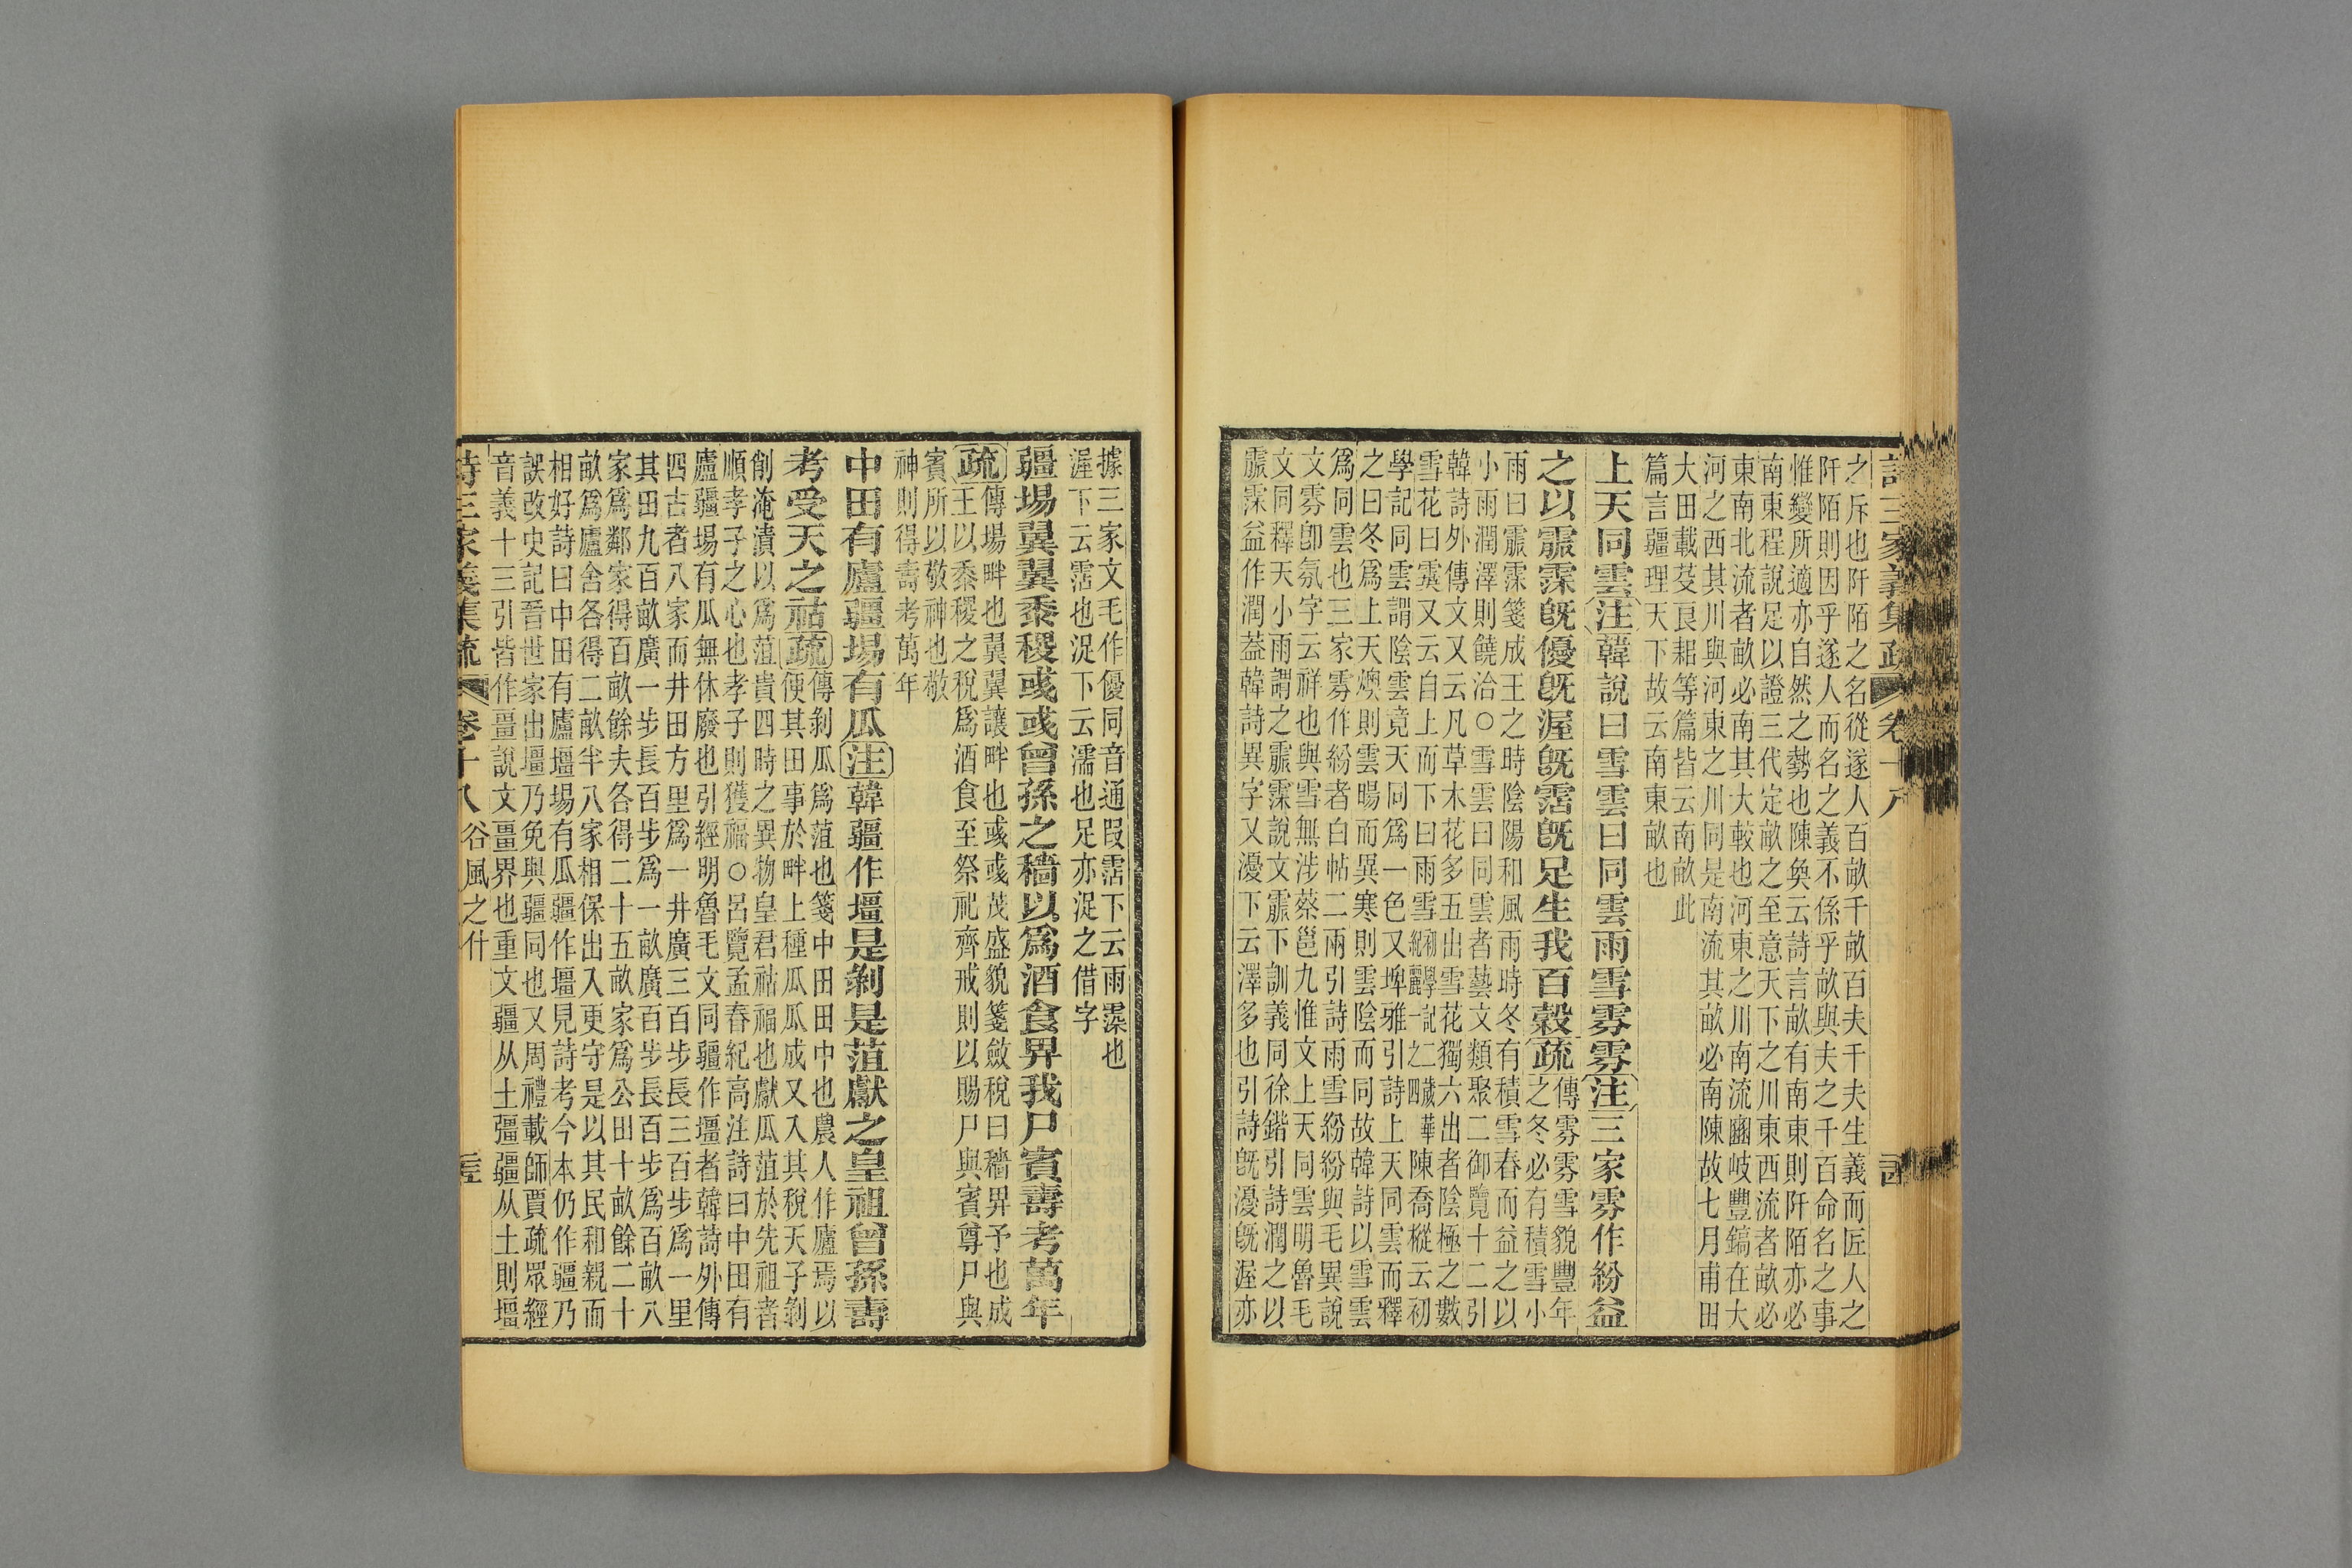 詩三家義集疏 卷十八
之斥也阡陌之名從遂人百畝千畝百夫千夫生義而匠人之
阡陌則因乎遂人而名之義不係乎畝與夫之千百命名之事
惟變所適亦自然之勢也陳奐云詩言畝有南東則阡陌亦必
南東程說足以證三代定畝之至意天下之川東西流者畝必
東南北流者畝必南其大較也河東之川南流豳岐豐鎬在大
河之西其川與河東之川同是南流其畝必南陳故七月甫田
大田載芟良耜等篇皆云南畝此
篇言疆理天下故云南東畝也
上天同雲注韓說曰雪雲曰同雲雨雪雰雰注三家雰作紛益
之以霢霂旣優旣渥旣霑旣足生我百穀疏
傳雰雰雪貌豐年
之冬必有積雪小
雨曰霢霂箋成王之時陰陽和風雨時冬有積雪春而益之以
小雨潤澤則饒洽○雪雲曰同雲者藝文類聚二御覽十二引
韓詩外傳文又云凡草木花多五出雪花獨六出者陰極之數
雪花曰霙又云自上而下曰雨雪初學記二歲華紀麗一之四陳喬樅云初
學記同雲謂陰雲竟天同爲一色又埤雅引詩上天同雲而釋
之曰冬爲上天燠則雲暘而異寒則雲陰而同故韓詩以雪雲
爲同雲也三家雰作紛者白帖二兩引詩雨雪紛紛與毛異說
文雰卽氛字云祥也與雪無涉蔡邕九惟文上天同雲明魯毛
文同釋天小雨謂之霢霂說文霢下訓義同徐鍇引詩潤之以
霢霂益作潤蓋韓詩異字又瀀下云澤多也引詩旣瀀旣渥亦
據三家文毛作優同音通叚霑下云雨䨙也
渥下云霑也浞下云濡也足亦浞之借字
疆埸翼翼黍稷彧彧曾孫之穡以爲酒食畀我尸賓壽考萬年
疏
傳埸畔也翼翼讓畔也彧彧茂盛貌箋斂稅曰穡畀予也成
王以黍稷之稅爲酒食至祭祀齊戒則以賜尸與賓尊尸與
賓所以敬神也敬
神則得壽考萬年
中田有廬疆埸有瓜注韓疆作壃是剝是菹獻之皇祖曾孫壽
考受天之祜疏
傳剝瓜爲菹也箋中田田中也農人作廬焉以
便其田事於畔上種瓜瓜成又入其稅天子剝
削淹漬以爲菹貴四時之異物皇君祜福也獻瓜菹於先祖者
順孝子之心也孝子則獲福○呂覽孟春紀高注詩曰中田有
廬疆埸有瓜無休廢也引經明魯毛文同疆作壃者韓詩外傳
四古者八家而井田方里爲一井廣三百步長三百步爲一里
其田九百畝廣一步長百步爲一畝廣百步長百步爲百畝八
家爲鄰家得百畝餘夫各得二十五畝家爲公田十畝餘二十
畝爲廬舍各得二畝半八家相保出入更守是以其民和親而
相好詩曰中田有廬壃埸有瓜疆作壃見詩考今本仍作疆乃
誤改史記晉世家出壃乃免與疆同也又周禮載師賈疏眾經
音義十三引皆作畺說文畺界也重文疆从土彊疆从土則壃
詩三家義集疏 卷十八 谷風之什